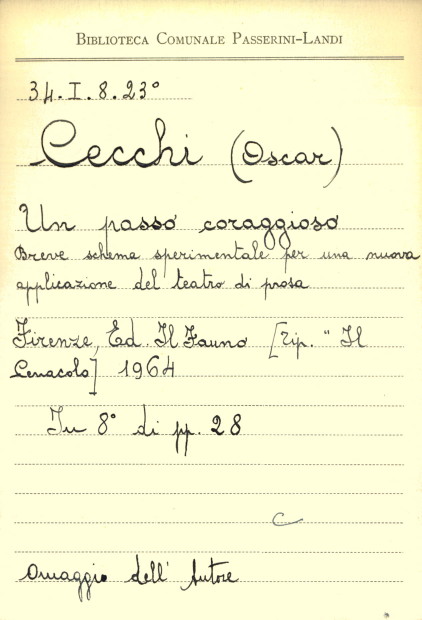 BIBLIOTECA COMUNALE PASSERINI-LANDI
34.I.8.23°
Cecchi (Oscar)
Un passo coraggioso
Breve schema sperimentale per una nuova
applicazione del teatro di prosa
Firenze, Ed. Il Fauno [Tip. " Il
Cenacolo] 1964
In 8° di pp. 28
C
Omaggio dell' Autore